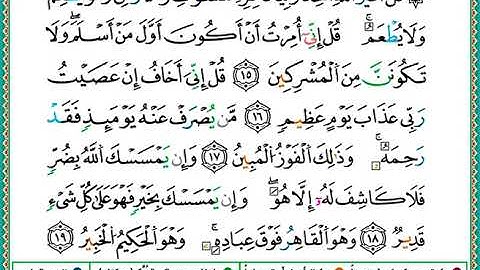 وَلَا يُطْعَمُ ۗ قُلْ إِنِّىٓ أُمِرْتُ أَنْ أَكُونَ أَوَّلَ مَنْ أَسْلَمَ ۖ وَلَا
تَكُونَنَّ مِنَ ٱلْمُشْرِكِينَ ١٥ قُلْ إِنِّىٓ أَخَافُ إِنْ عَصَيْتُ
رَبِّى عَذَابَ يَوْمٍ عَظِيمٍ ١٦ مَّن يُصْرَفْ عَنْهُ يَوْمَئِذٍ فَقَدْ
رَحِمَهُۥ ۚ وَذَٰلِكَ ٱلْفَوْزُ ٱلْمُبِينُ ١٧ وَإِن يَمْسَسْكَ ٱللَّهُ بِضُرٍّ
فَلَا كَاشِفَ لَهُۥٓ إِلَّا هُوَ ۖ وَإِن يَمْسَسْكَ بِخَيْرٍ فَهُوَ عَلَىٰ كُلِّ شَىْءٍ
قَدِيرٌ ١٨ وَهُوَ ٱلْقَاهِرُ فَوْقَ عِبَادِهِۦ ۚ وَهُوَ ٱلْحَكِيمُ ٱلْخَبِيرُ ١٩